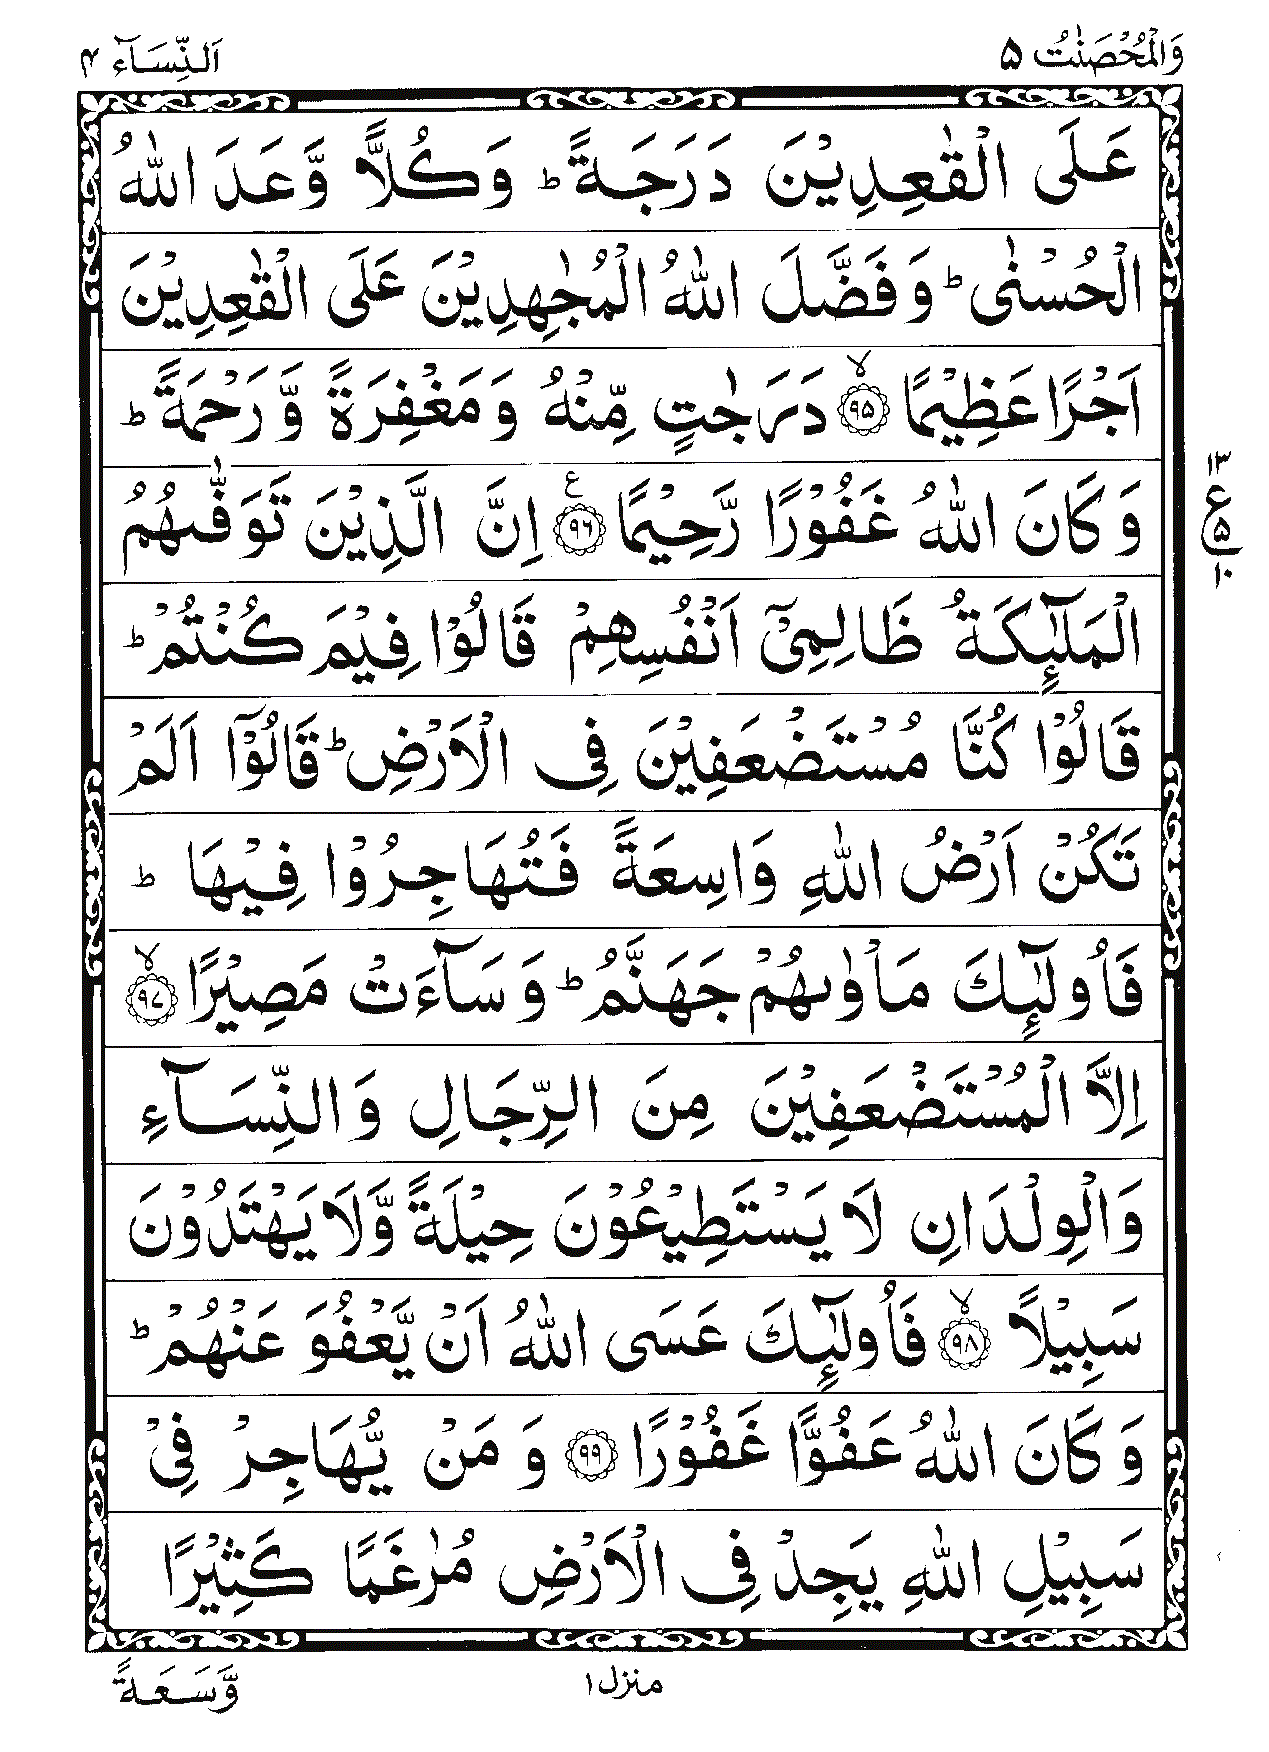 وَالْمُحْصَنٰتُ ۵
اَلنِّسَآء ۴
عَلَى الْقٰعِدِيْنَ دَرَجَةً ؕ وَكُلًّا وَّعَدَ اللّٰهُ
الْحُسْنٰى ؕ وَفَضَّلَ اللّٰهُ الْمُجٰهِدِيْنَ عَلَى الْقٰعِدِيْنَ
اَجْرًا عَظِيْمًا ۙ﴿۹۵﴾ دَرَجٰتٍ مِّنْهُ وَمَغْفِرَةً وَّرَحْمَةً ؕ
۱۳
وَكَانَ اللّٰهُ غَفُوْرًا رَّحِيْمًا ﴿۹۶﴾ ع اِنَّ الَّذِيْنَ تَوَفّٰىهُمُ
ع
۵
۱۰
الْمَلٰٓئِكَةُ ظَالِمِيْٓ اَنْفُسِهِمْ قَالُوْا فِيْمَ كُنْتُمْ ؕ
قَالُوْا كُنَّا مُسْتَضْعَفِيْنَ فِى الْاَرْضِ ؕ قَالُوْٓا اَلَمْ
تَكُنْ اَرْضُ اللّٰهِ وَاسِعَةً فَتُهَاجِرُوْا فِيْهَا ؕ
فَاُولٰٓئِكَ مَاْوٰىهُمْ جَهَنَّمُ ؕ وَسَآءَتْ مَصِيْرًا ۙ﴿۹۷﴾
اِلَّا الْمُسْتَضْعَفِيْنَ مِنَ الرِّجَالِ وَالنِّسَآءِ
وَالْوِلْدَانِ لَا يَسْتَطِيْعُوْنَ حِيْلَةً وَّلَا يَهْتَدُوْنَ
سَبِيْلًا ۙ﴿۹۸﴾ فَاُولٰٓئِكَ عَسَى اللّٰهُ اَنْ يَّعْفُوَ عَنْهُمْ ؕ
وَكَانَ اللّٰهُ عَفُوًّا غَفُوْرًا ﴿۹۹﴾ وَمَنْ يُّهَاجِرْ فِيْ
سَبِيْلِ اللّٰهِ يَجِدْ فِى الْاَرْضِ مُرٰغَمًا كَثِيْرًا
منزل ۱
وَّسَعَةً